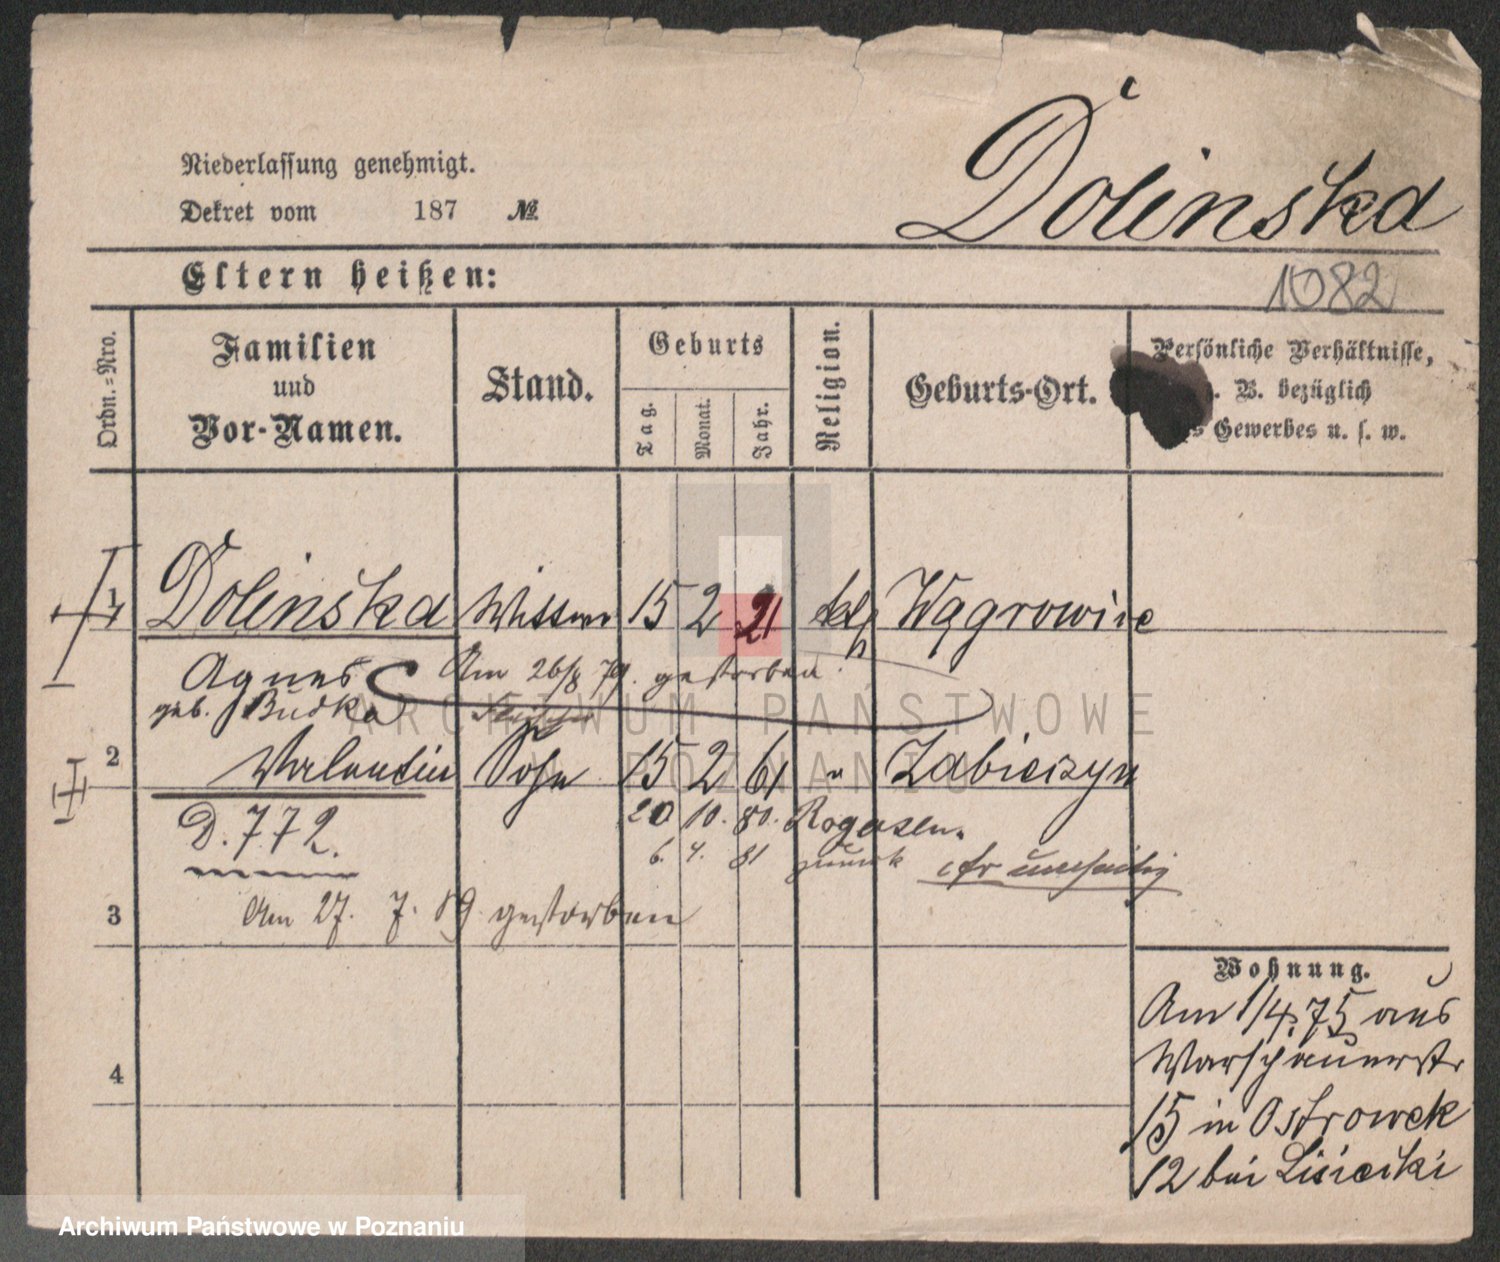 Niederlassung genehmigt.
Dekret vom 187 №
Dolinska
Eltern heißen:
1082
Ordn.-Nro.
Familien
und
Vor-Namen.
Stand.
Geburts
Tag.
Monat.
Jahr.
Religion.
Geburts-Ort.
Persönliche Verhältnisse,
B. bezüglich
Gewerbes u. s. w.
1 Dolinska Wittwe 15 2 21 kth Wągrowiec
Agnes Am 26/8 79. gestorben.
geb. Budka
2 Valentin Sohn 15 2 61 " Zabiczyn
D. 772. 20 10. 80. Rogasen.
6. 4. 81 zurück cfr umseitig
3 Am 27. 7. 89 gestorben
4
Wohnung.
Am 1/4 75 aus
Warschauerstr
15 in Ostrowek
12 bei Lisiecki
ARCHIWUM PAŃSTWOWE
W POZNANIU
Archiwum Państwowe w Poznaniu